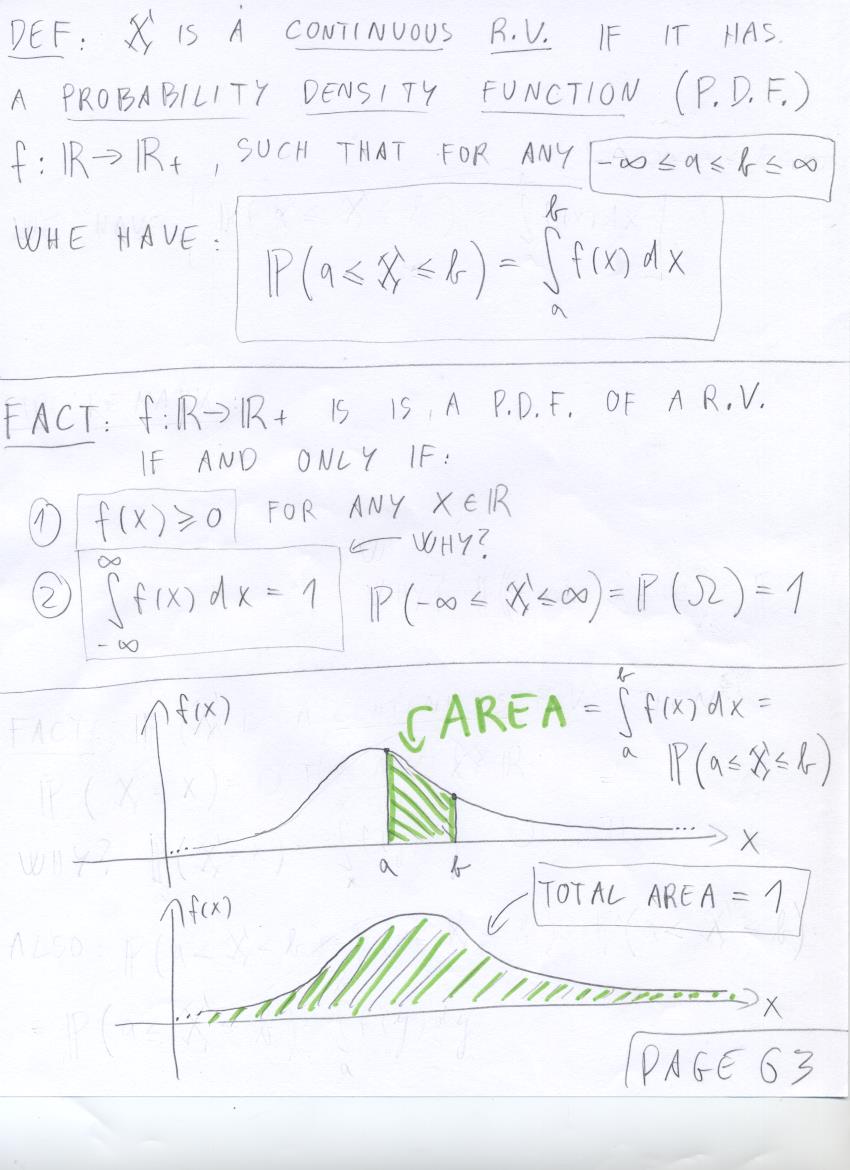 DEF: X IS A CONTINUOUS R.V. IF IT HAS
A PROBABILITY DENSITY FUNCTION (P.D.F.)
f: ℝ→ℝ₊, SUCH THAT FOR ANY -∞ ≤ a ≤ b ≤ ∞
WHE HAVE: ℙ(a ≤ X ≤ b) = ∫ₐᵇ f(x) dx
FACT: f: ℝ→ℝ₊ IS IS A P.D.F. OF A R.V.
IF AND ONLY IF:
① f(x) ≥ 0 FOR ANY x ∈ ℝ
← WHY?
② ∫_{-∞}^{∞} f(x) dx = 1 ℙ(-∞ ≤ X ≤ ∞) = ℙ(Ω) = 1
f(x) AREA = ∫ₐᵇ f(x) dx =
ℙ(a ≤ X ≤ b)
... ... x
a b
TOTAL AREA = 1
f(x)
... ... x
PAGE 63